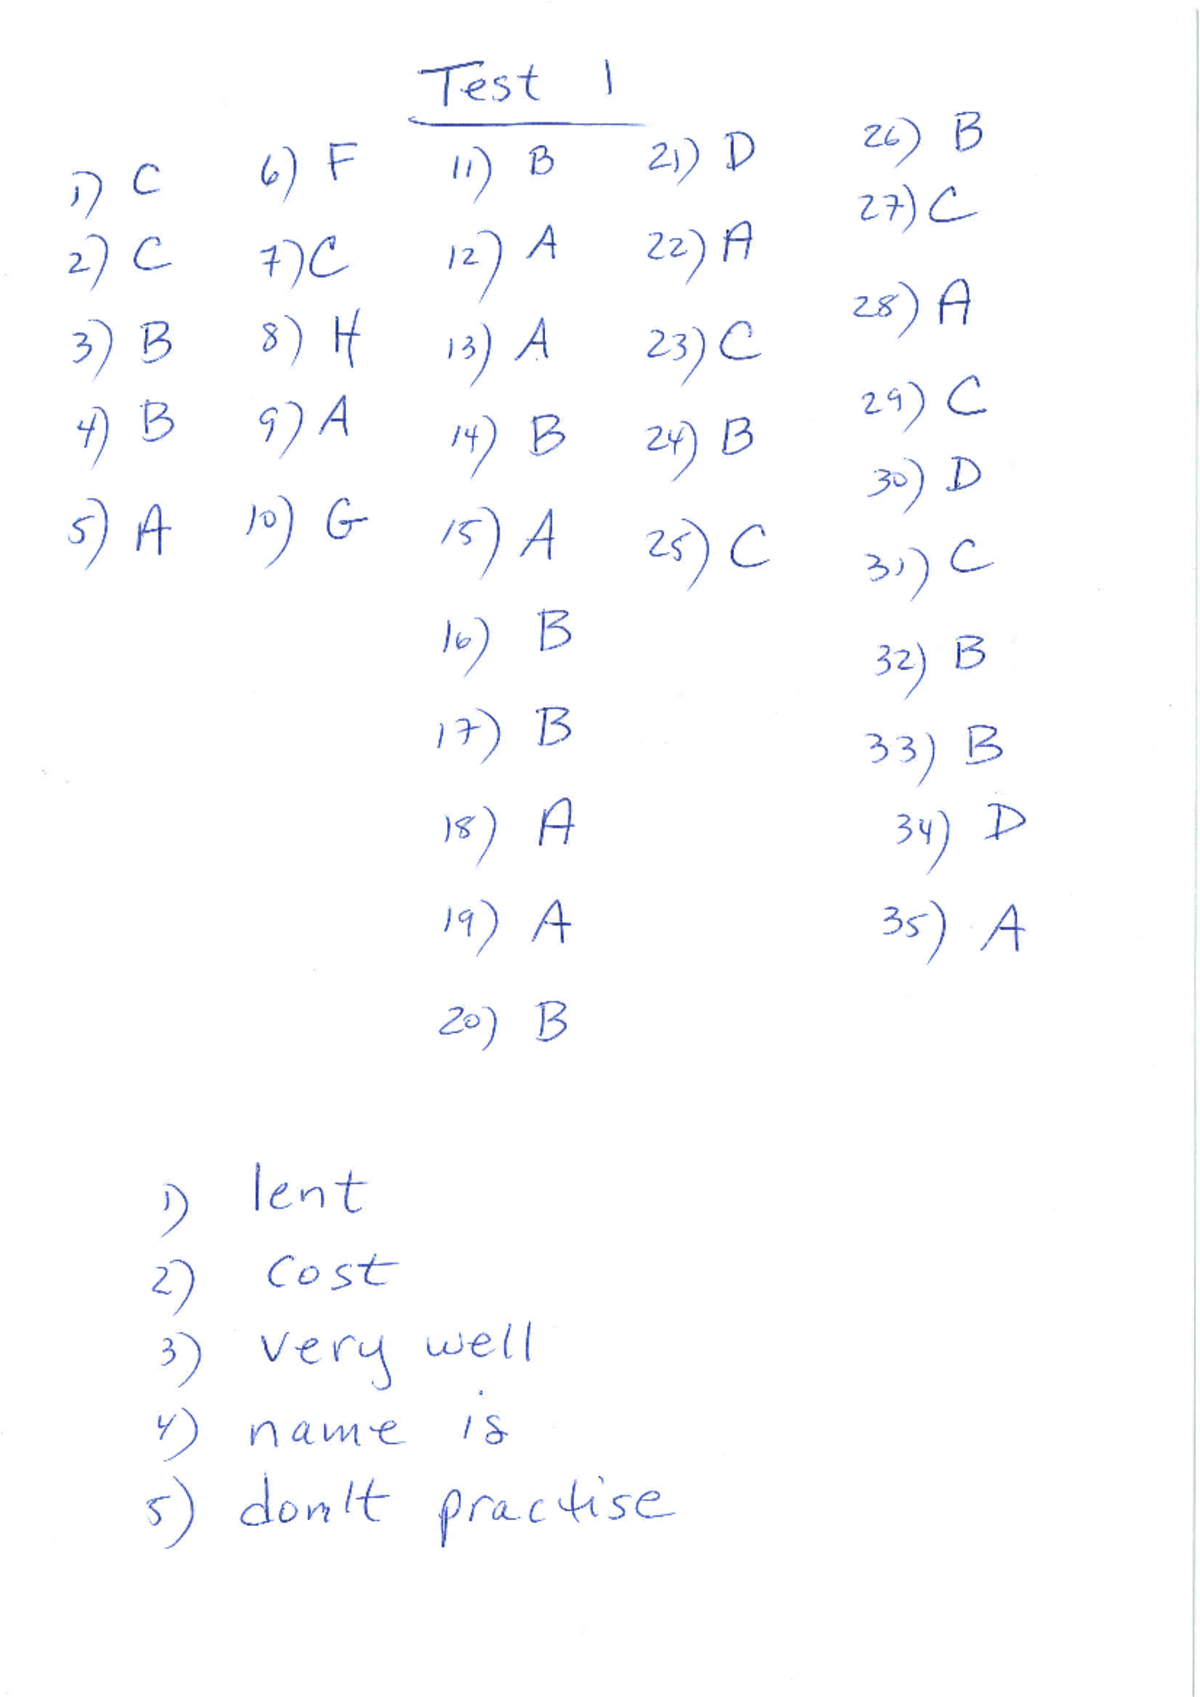 Test 1
1) C
2) C
3) B
4) B
5) A
6) F
7) C
8) H
9) A
10) G
11) B
12) A
13) A
14) B
15) A
16) B
17) B
18) A
19) A
20) B
21) D
22) A
23) C
24) B
25) C
26) B
27) C
28) A
29) C
30) D
31) C
32) B
33) B
34) D
35) A
1) lent
2) cost
3) very well
4) name is
5) don't practise